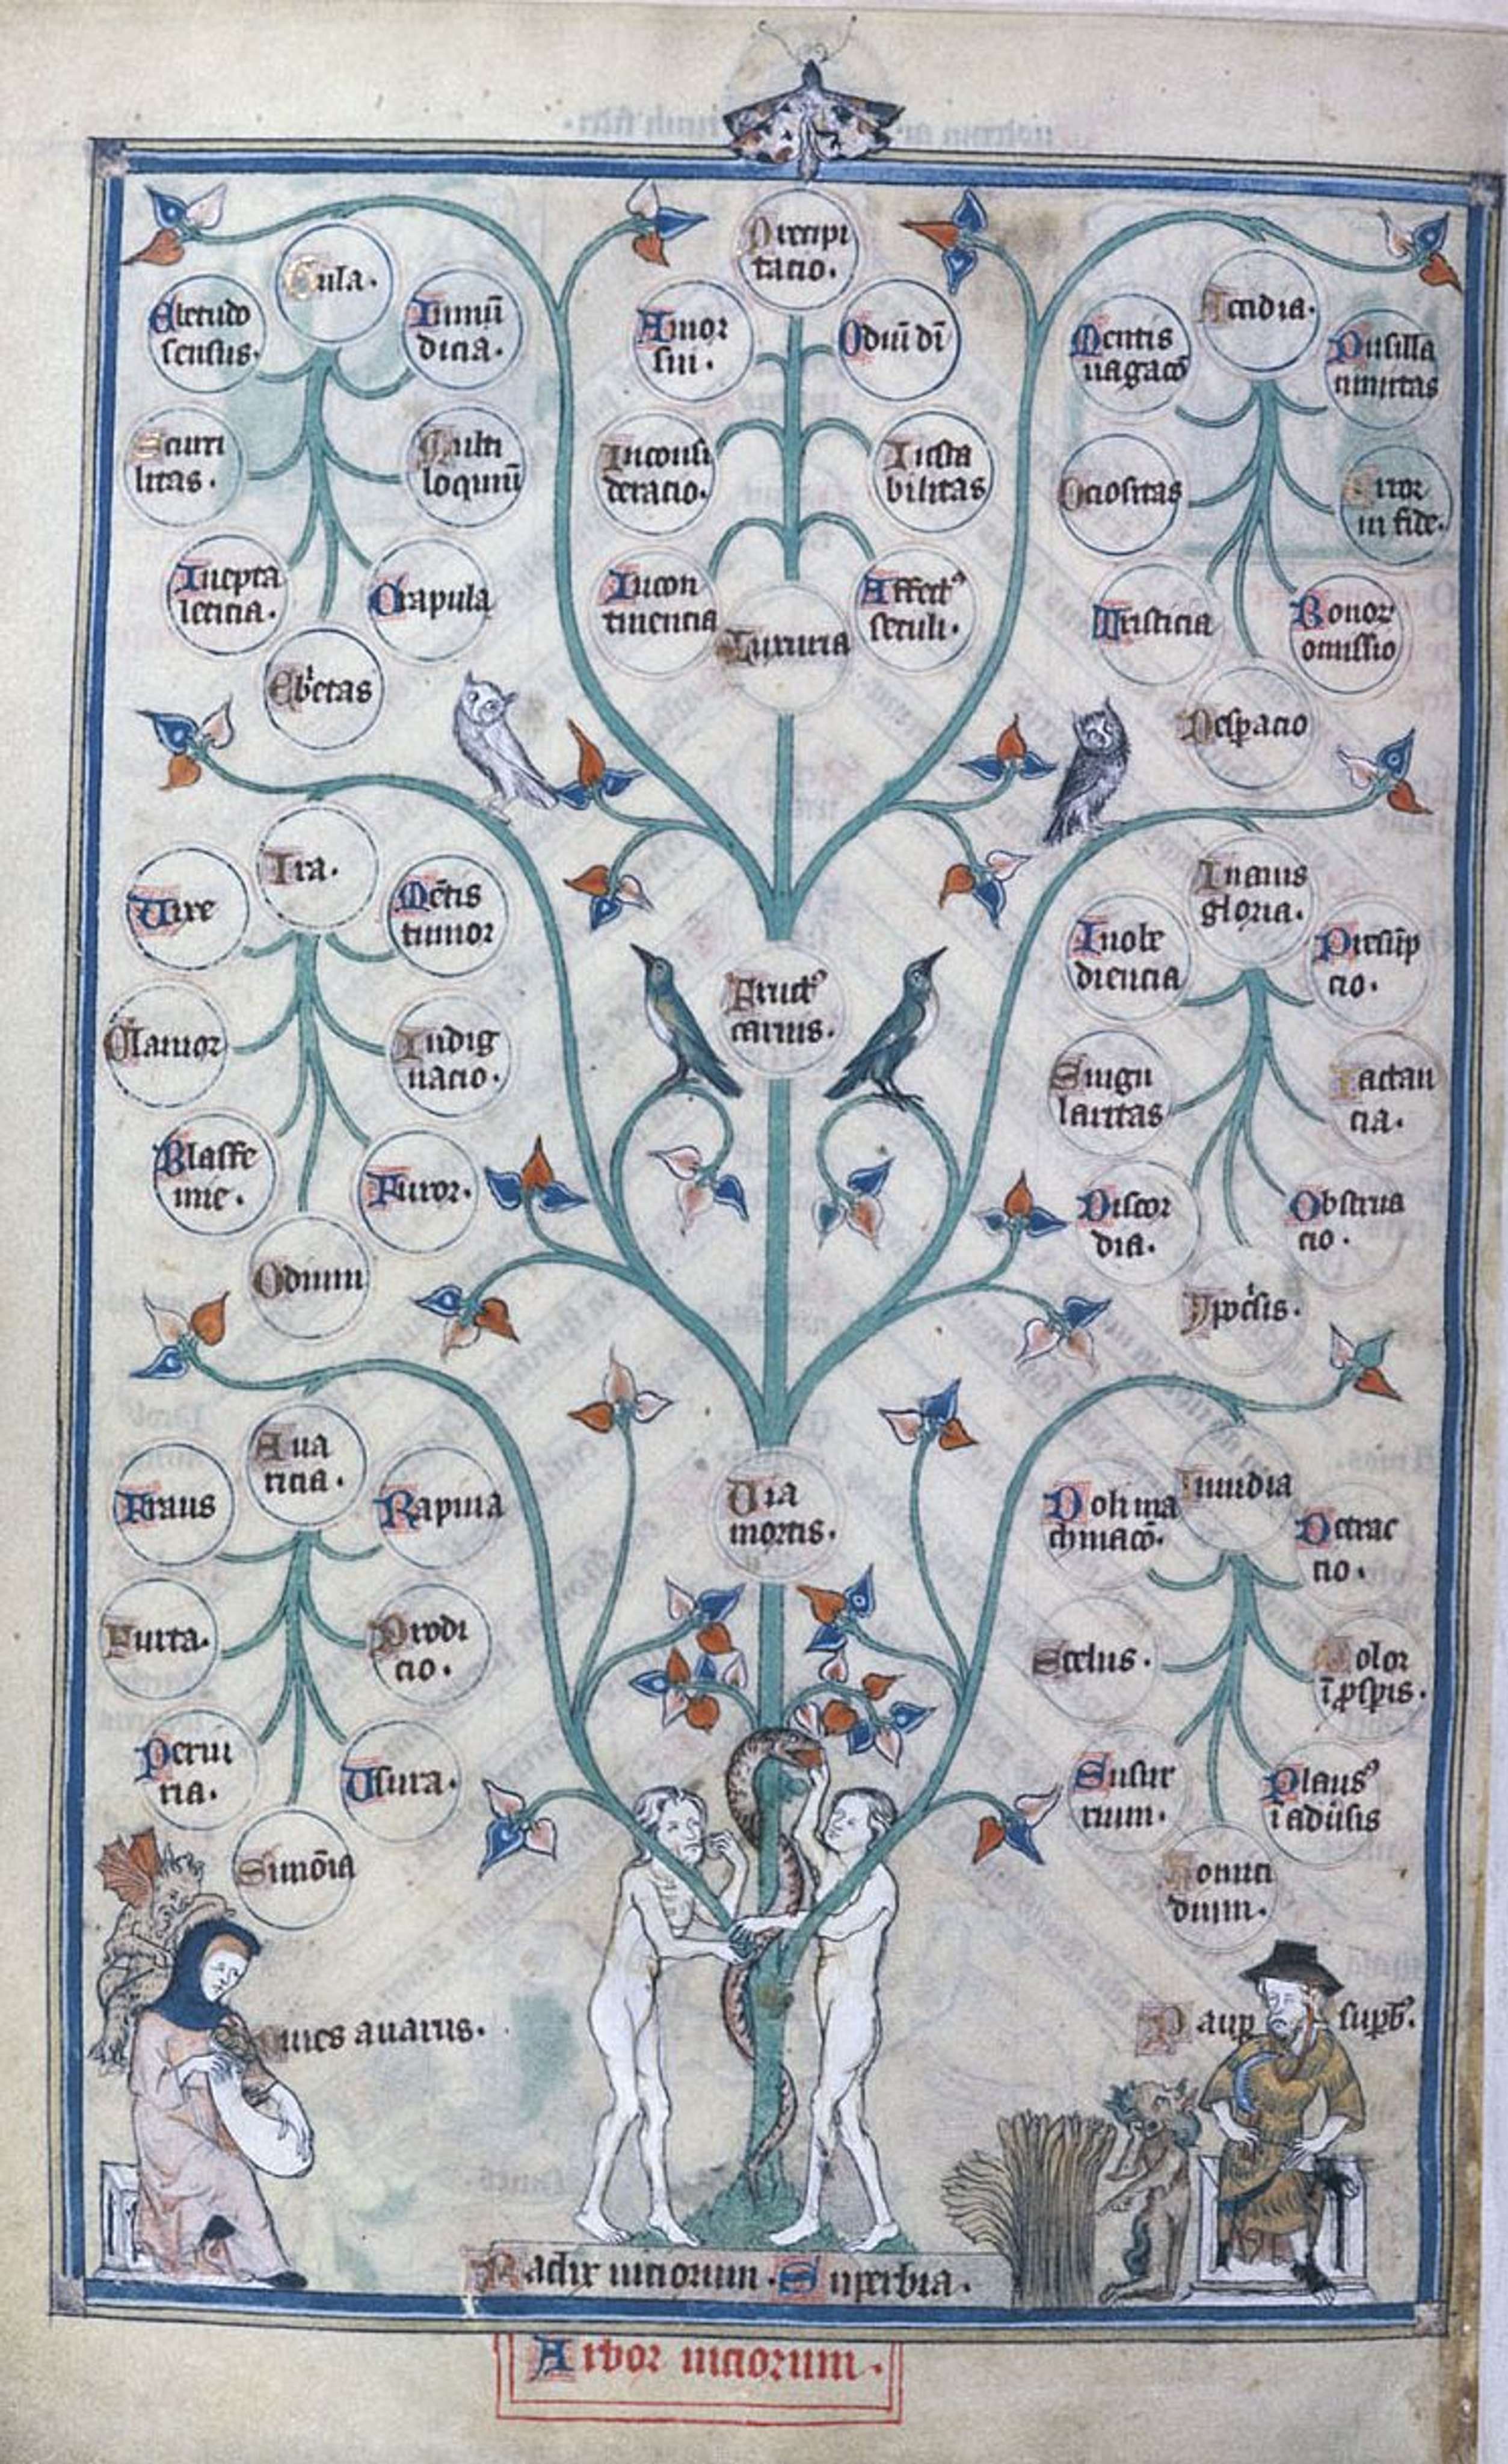 Gula.
Ebetudo
sensus.
Inmū
dicia.
Scurri
litas.
Multi
loquiuū
Inepta
leticia.
Crapula
Ebʼetas
Precipi
tacio.
Amor
sui.
Odiū dī
Inconsi
deracio.
Incon
tinencia
Affectꝰ
seculi.
Luxuria
Accidia.
Mentis
uagacō
Pusilla
nimitas
Ociositas
Error
in fide.
Tristicia
Bonor
omissio
Despacio
Ira.
Rixe
Mētis
tumor
Clamor
Indig
nacio.
Blasfe
mie.
Furor.
Odium
Fructꝰ
carnis.
Inanis
gloria.
Inobe
diencia
Presūp
cio.
Singu
laritas
Iactan
cia.
Discor
dia.
Obstina
cio.
Ipocʼsis.
Aua
ricia.
Fraus
Rapina
Furta.
Prodi
cio.
Periu
ria.
Usura.
Simōia
Via
mortis.
Inuidia
Doli ma
chinacō.
Detrac
cio.
Scelus.
Dolor
ī pʼspis.
Susur
rium.
Plausꝰ
ī adūsis
Homici
dium.
Diues auarus.
Paup
supbʼ.
Radix uiciorum. Superbia.
Arbor uiciorum.